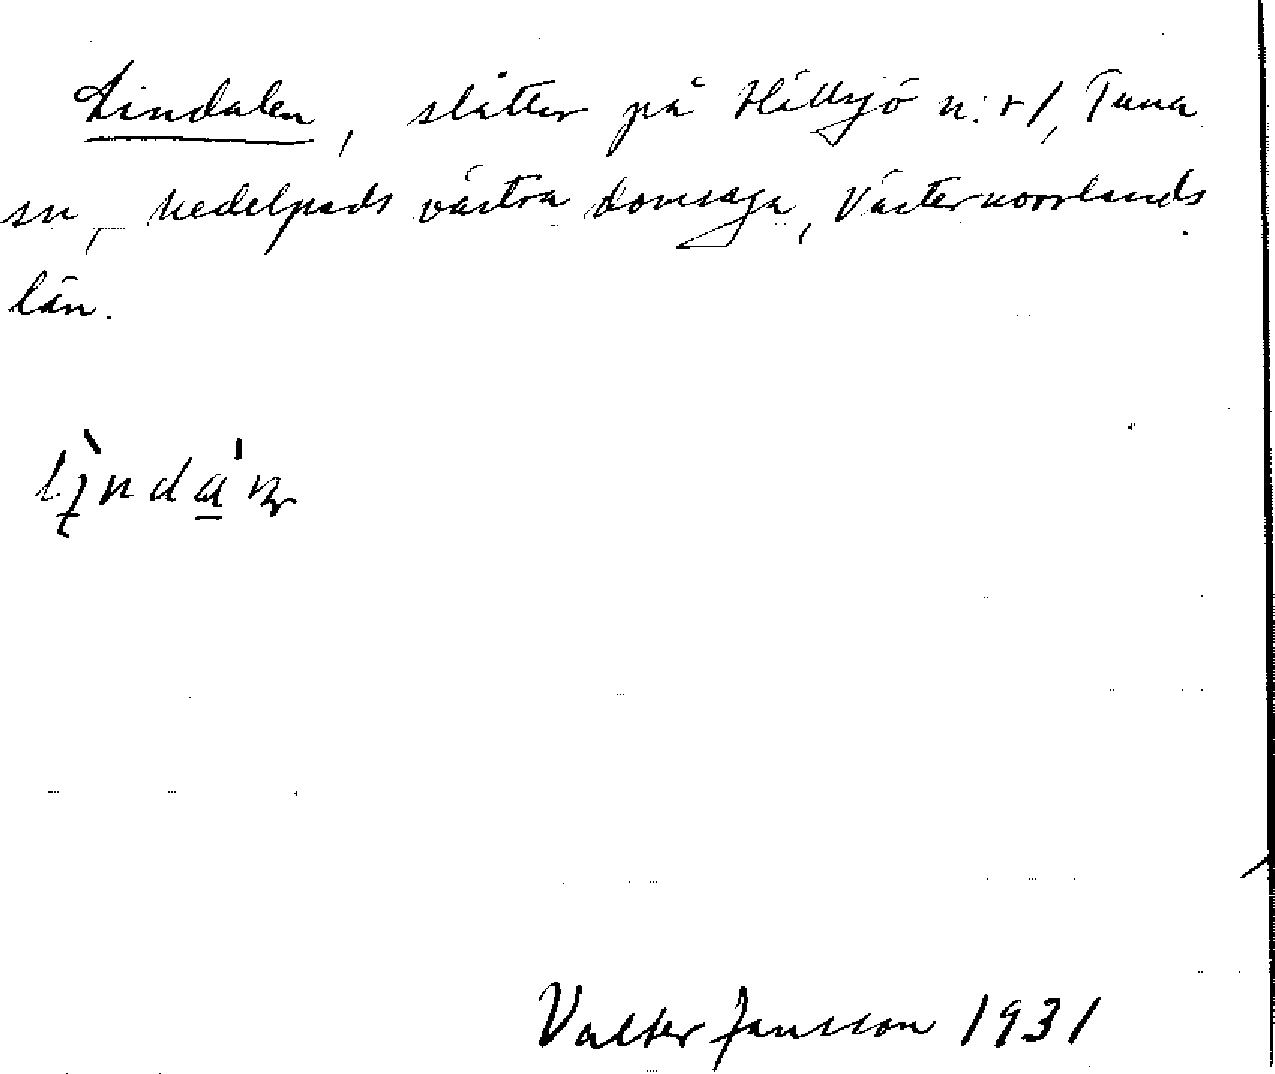 Lindalen, slåtter på Hällsjö n:r 1, Tuna
sn, Medelpads västra domsaga, Västernorrlands
län.
Valter Jansson 1931